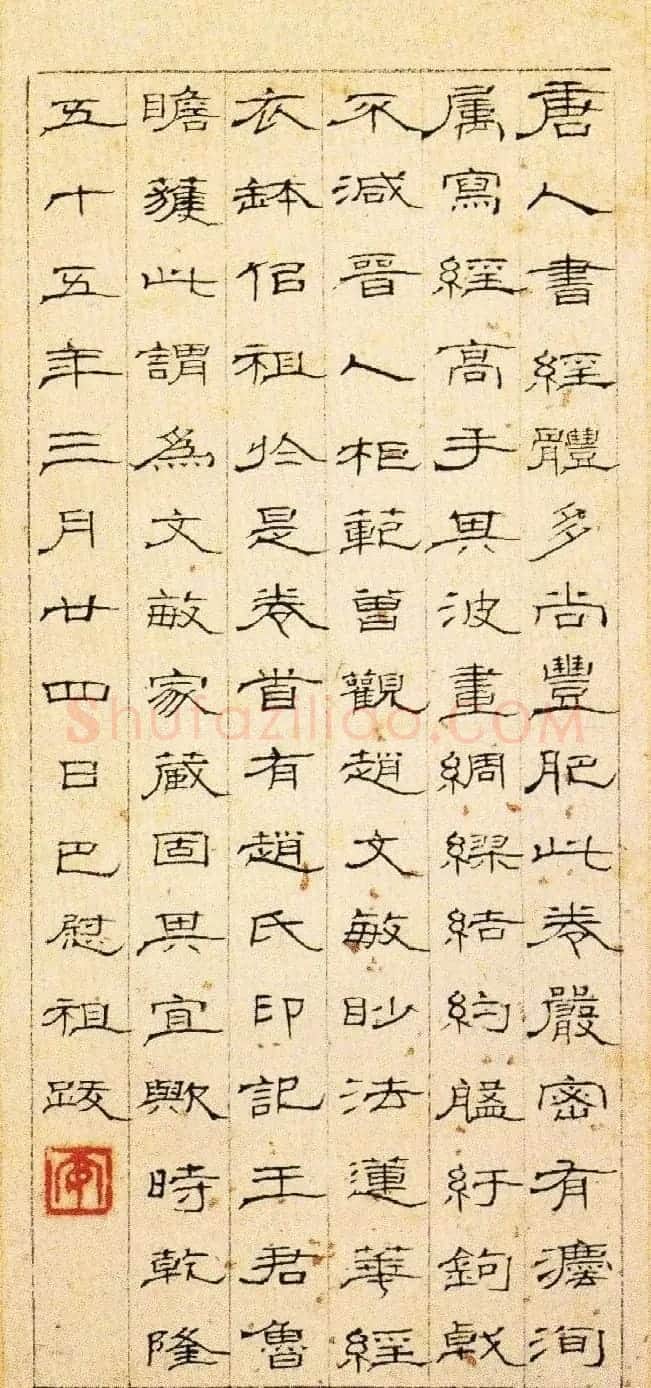 唐人書經體多尚豐肥此卷嚴密有灋洵
属寫經高手其波畫綢繆結約紆鉤戟
不減晉人柜範曾觀趙文敏眇法蓮華經
衣缽佀祖於是卷首有趙氏印記王君魯
瞻獲此謂為文敏家藏固其宜歟時乾隆
五十五年三月廿四日巴慰祖跋
Shufaziliao.COM